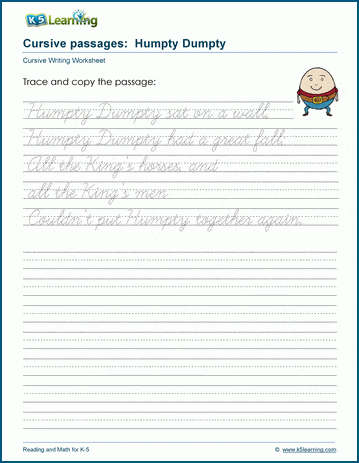 K5 Learning
Cursive passages: Humpty Dumpty
Cursive Writing Worksheet
Trace and copy the passage:
Humpty Dumpty sat on a wall,
Humpty Dumpty had a great fall,
All the King's horses, and
all the King's men
Couldn't put Humpty together again.
Reading and Math for K-5
© www.k5learning.com